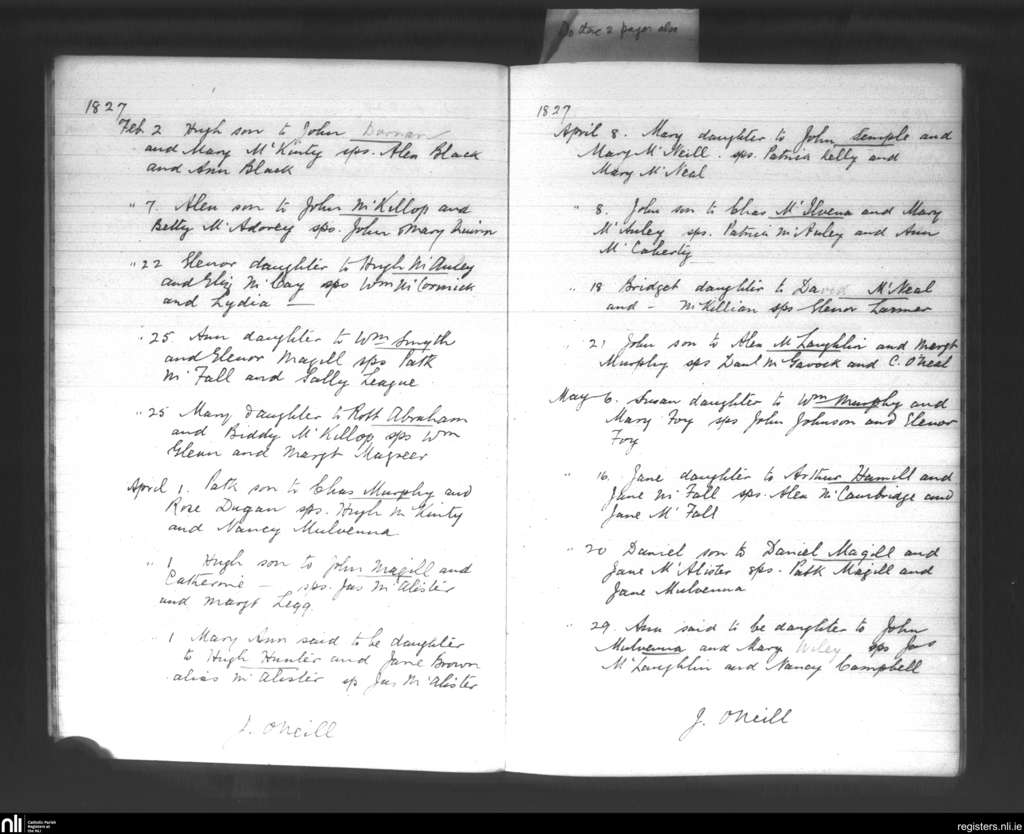 Do these 2 pages also
1827
Feb. 2 Hugh son to John Darnan
and Mary McKinty sps. Alex Black
and Ann Black
" 7. Alex son to John McKillop and
Betty McAdorey sps. John & Mary Quinn
" 22 Elenor daughter to Hugh McAuley
and Eliz McCay sps Wm McCormick
and Lydia —
" 25 Ann daughter to Wm Smyth
and Elenor Magill sps Patk
McFall and Sally League
" 25 Mary daughter to Robt Abraham
and Biddy McKillop sps Wm
Glenn and Margt Magreer
April 1. Patk son to Chas Murphy and
Rose Dugan sps. Hugh McKinty
and Nancy Mulvenna
" 1 Hugh son to John Magill and
Catherine — sps. Jas McAlister
and Margt Legg
" 1 Mary Ann said to be daughter
to Hugh Hunter and Jane Brown
alias McAlister sp Jas McAlister
J. O'Neill
1827
April 8. Mary daughter to John Semple and
Mary McNeill. sps. Patrick Kelly and
Mary McNeal
" 8. John son to Chas McIlvena and Mary
McAuley sps. Patrick McAuley and Ann
McCaherty
" 18 Bridget daughter to David McNeal
and - McKillian sps Elenor Larmer
" 21 John son to Alex McLaughlin and Margt
Murphy sps Danl McGavock and C. O'Neal
May 6. Susan daughter to Wm Murphy and
Mary Foy sps John Johnson and Elenor
Foy
" 16. Jane daughter to Arthur Hamill and
Jane McFall sps. Alex McCambridge and
Jane McFall
" 20 Daniel son to Daniel Magill and
Jane McAlister sps. Patk Magill and
Jane Mulvenna
" 29. Ann said to be daughter to John
Mulvenna and Mary Wiley sps Jas
McLaughlin and Nancy Campbell
J. O'Neill
nli
Catholic Parish
Registers at
the NLI
registers.nli.ie